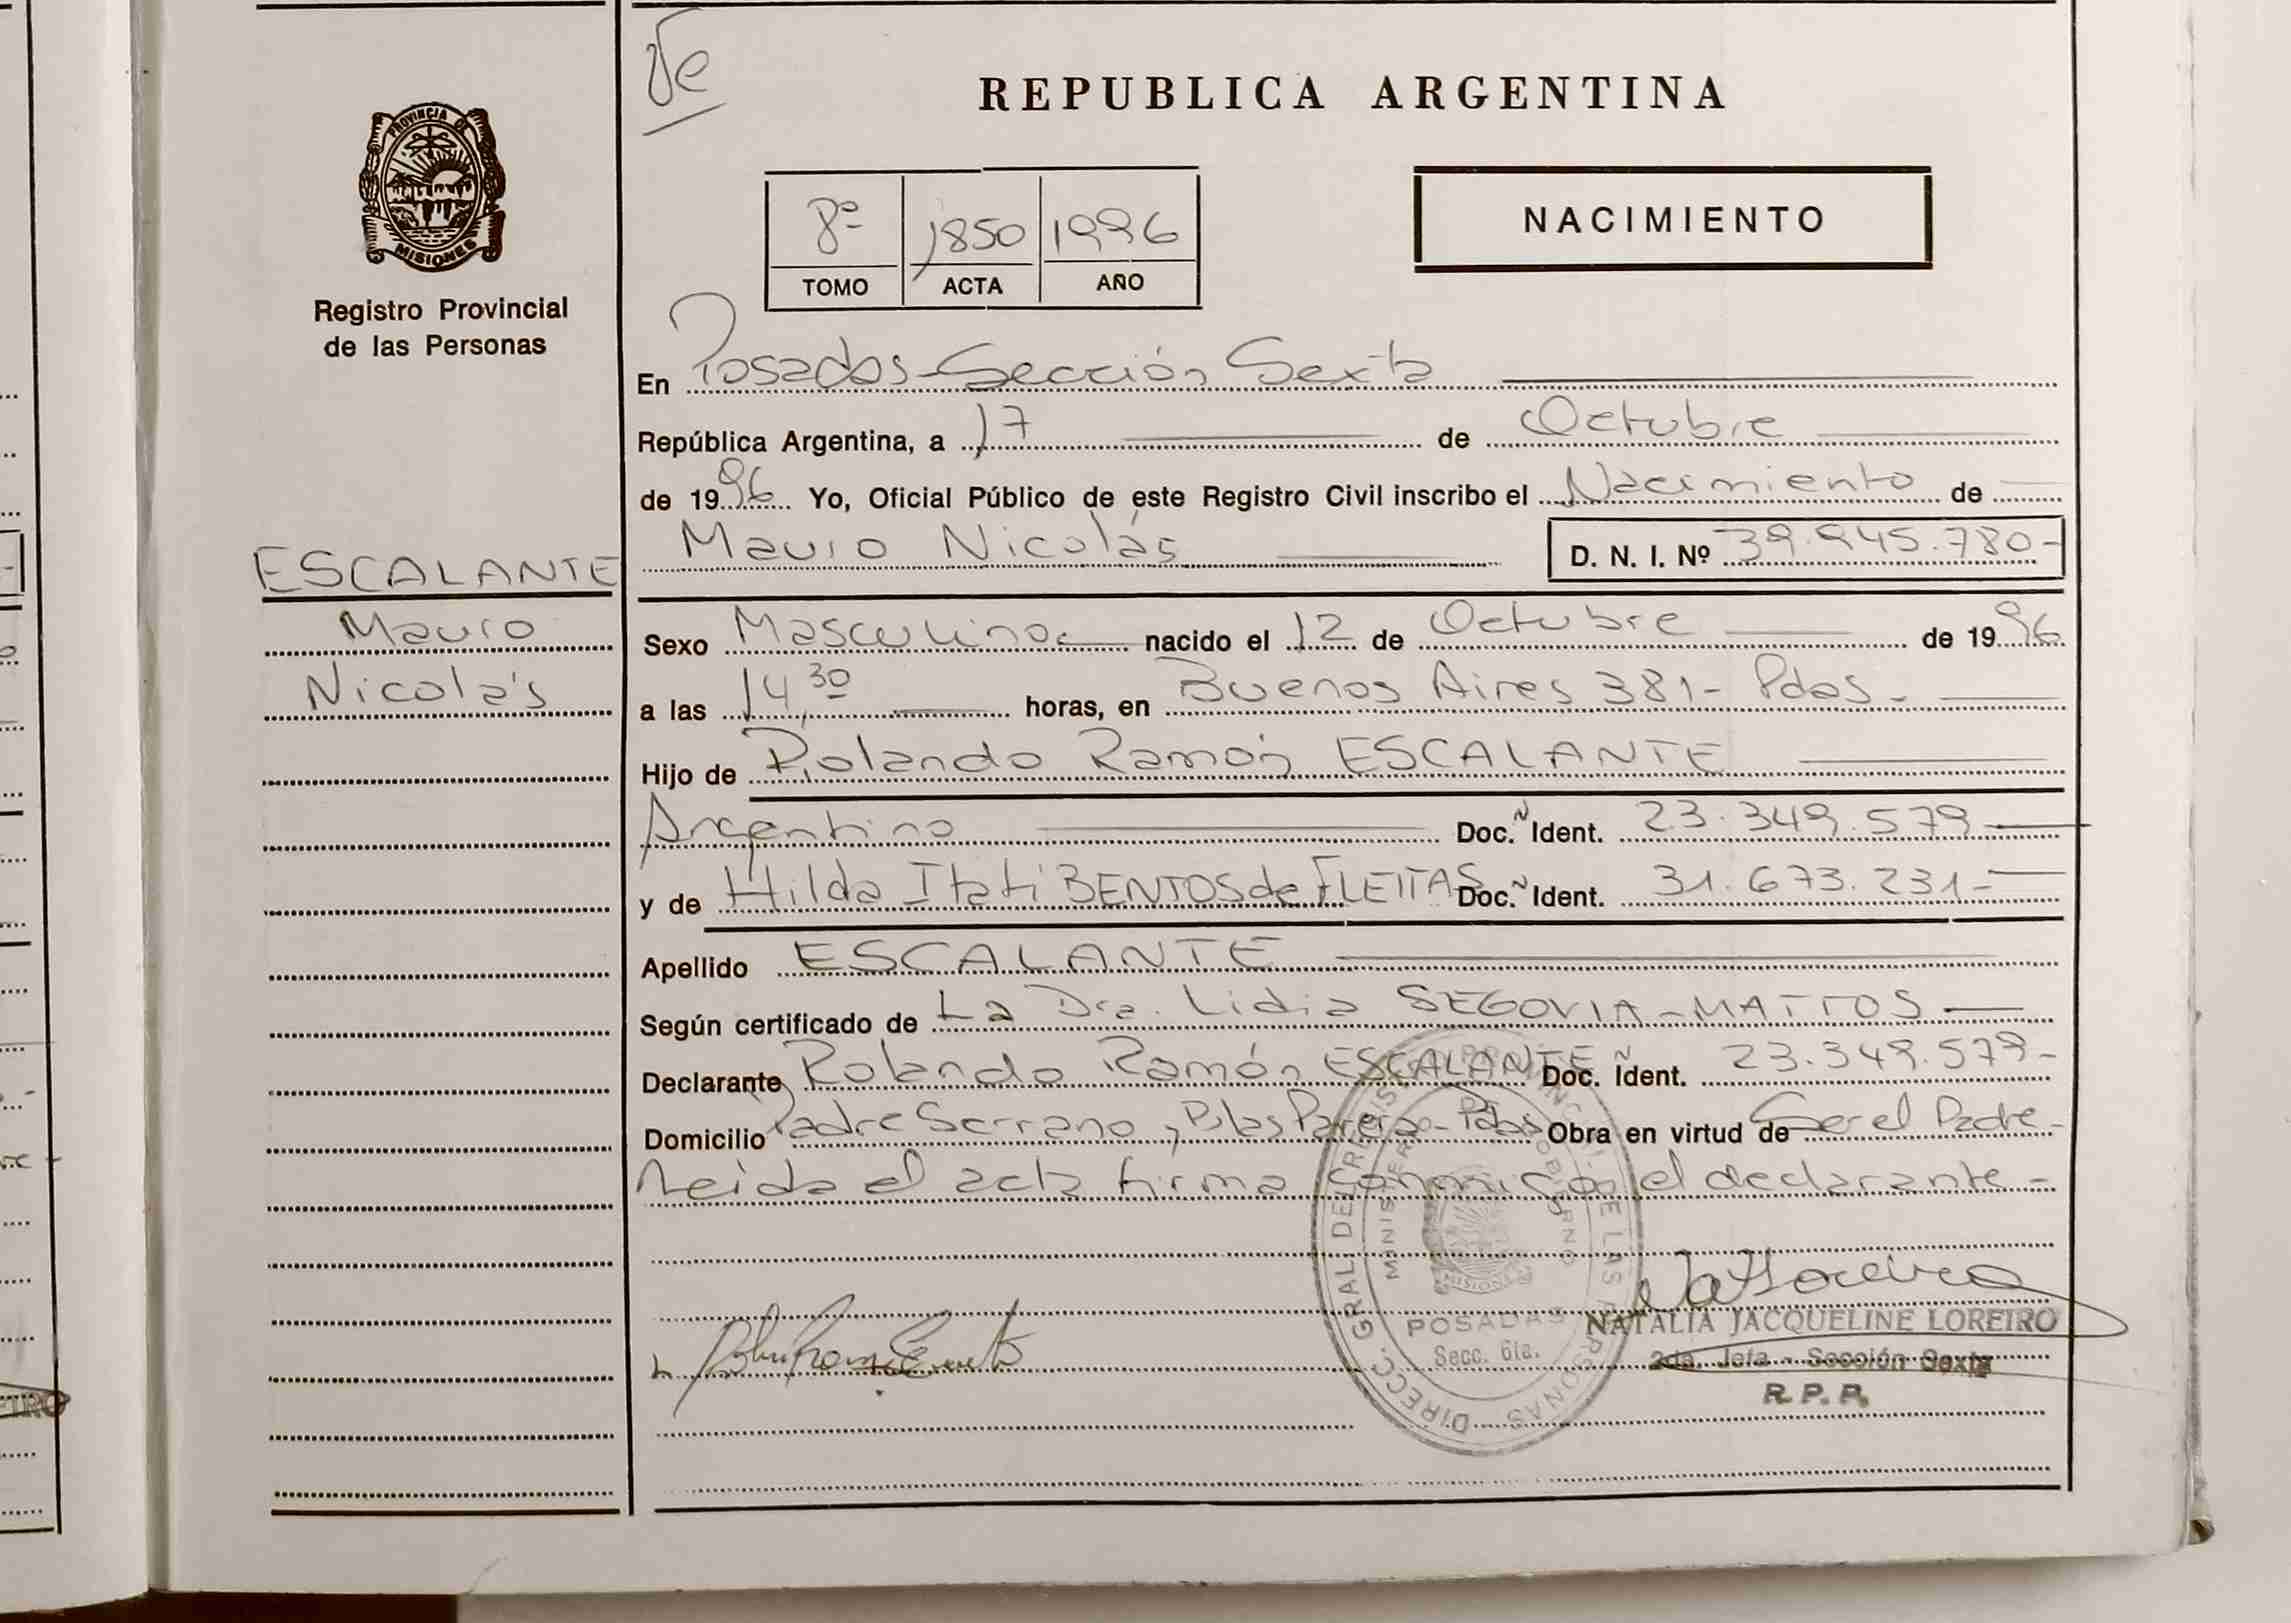 de
REPUBLICA ARGENTINA
PROVINCIA DE
MISIONES
Registro Provincial
de las Personas
8º 1850 1996
TOMO ACTA AÑO
NACIMIENTO
En Posadas - Sección Sexta
República Argentina, a 17 de Octubre
de 1996 Yo, Oficial Público de este Registro Civil inscribo el Nacimiento de
Mauro Nicolás D. N. I. Nº 39.945.780-
ESCALANTE
Mauro
Nicolás
Sexo Masculino nacido el 12 de Octubre de 1996
a las 14,30 horas, en Buenos Aires 381- Pdas-
Hijo de Rolando Ramón ESCALANTE
Argentino Doc. Ident. 23.349.579
y de Hilda Itatí BENTOS de FLEITAS Doc. Ident. 31.673.231-
Apellido ESCALANTE
Según certificado de La Dra. Lidia SEGOVIA-MATTOS
Declarante Rolando Ramón ESCALANTE Doc. Ident. 23.349.579-
Domicilio Padre Serrano y Blas Parera- Pdas Obra en virtud de Ser el Padre-
Leida el acta firma conmigo el declarante-
DIRECC. GRAL. DEL REGISTRO PROVINCIAL DE LAS PERSONAS
MINISTERIO GOBIERNO
MISIONES
POSADAS
Secc. 6ta.
NATALIA JACQUELINE LOREIRO
2da. Jefa - Sección Sexta
R. P. P.